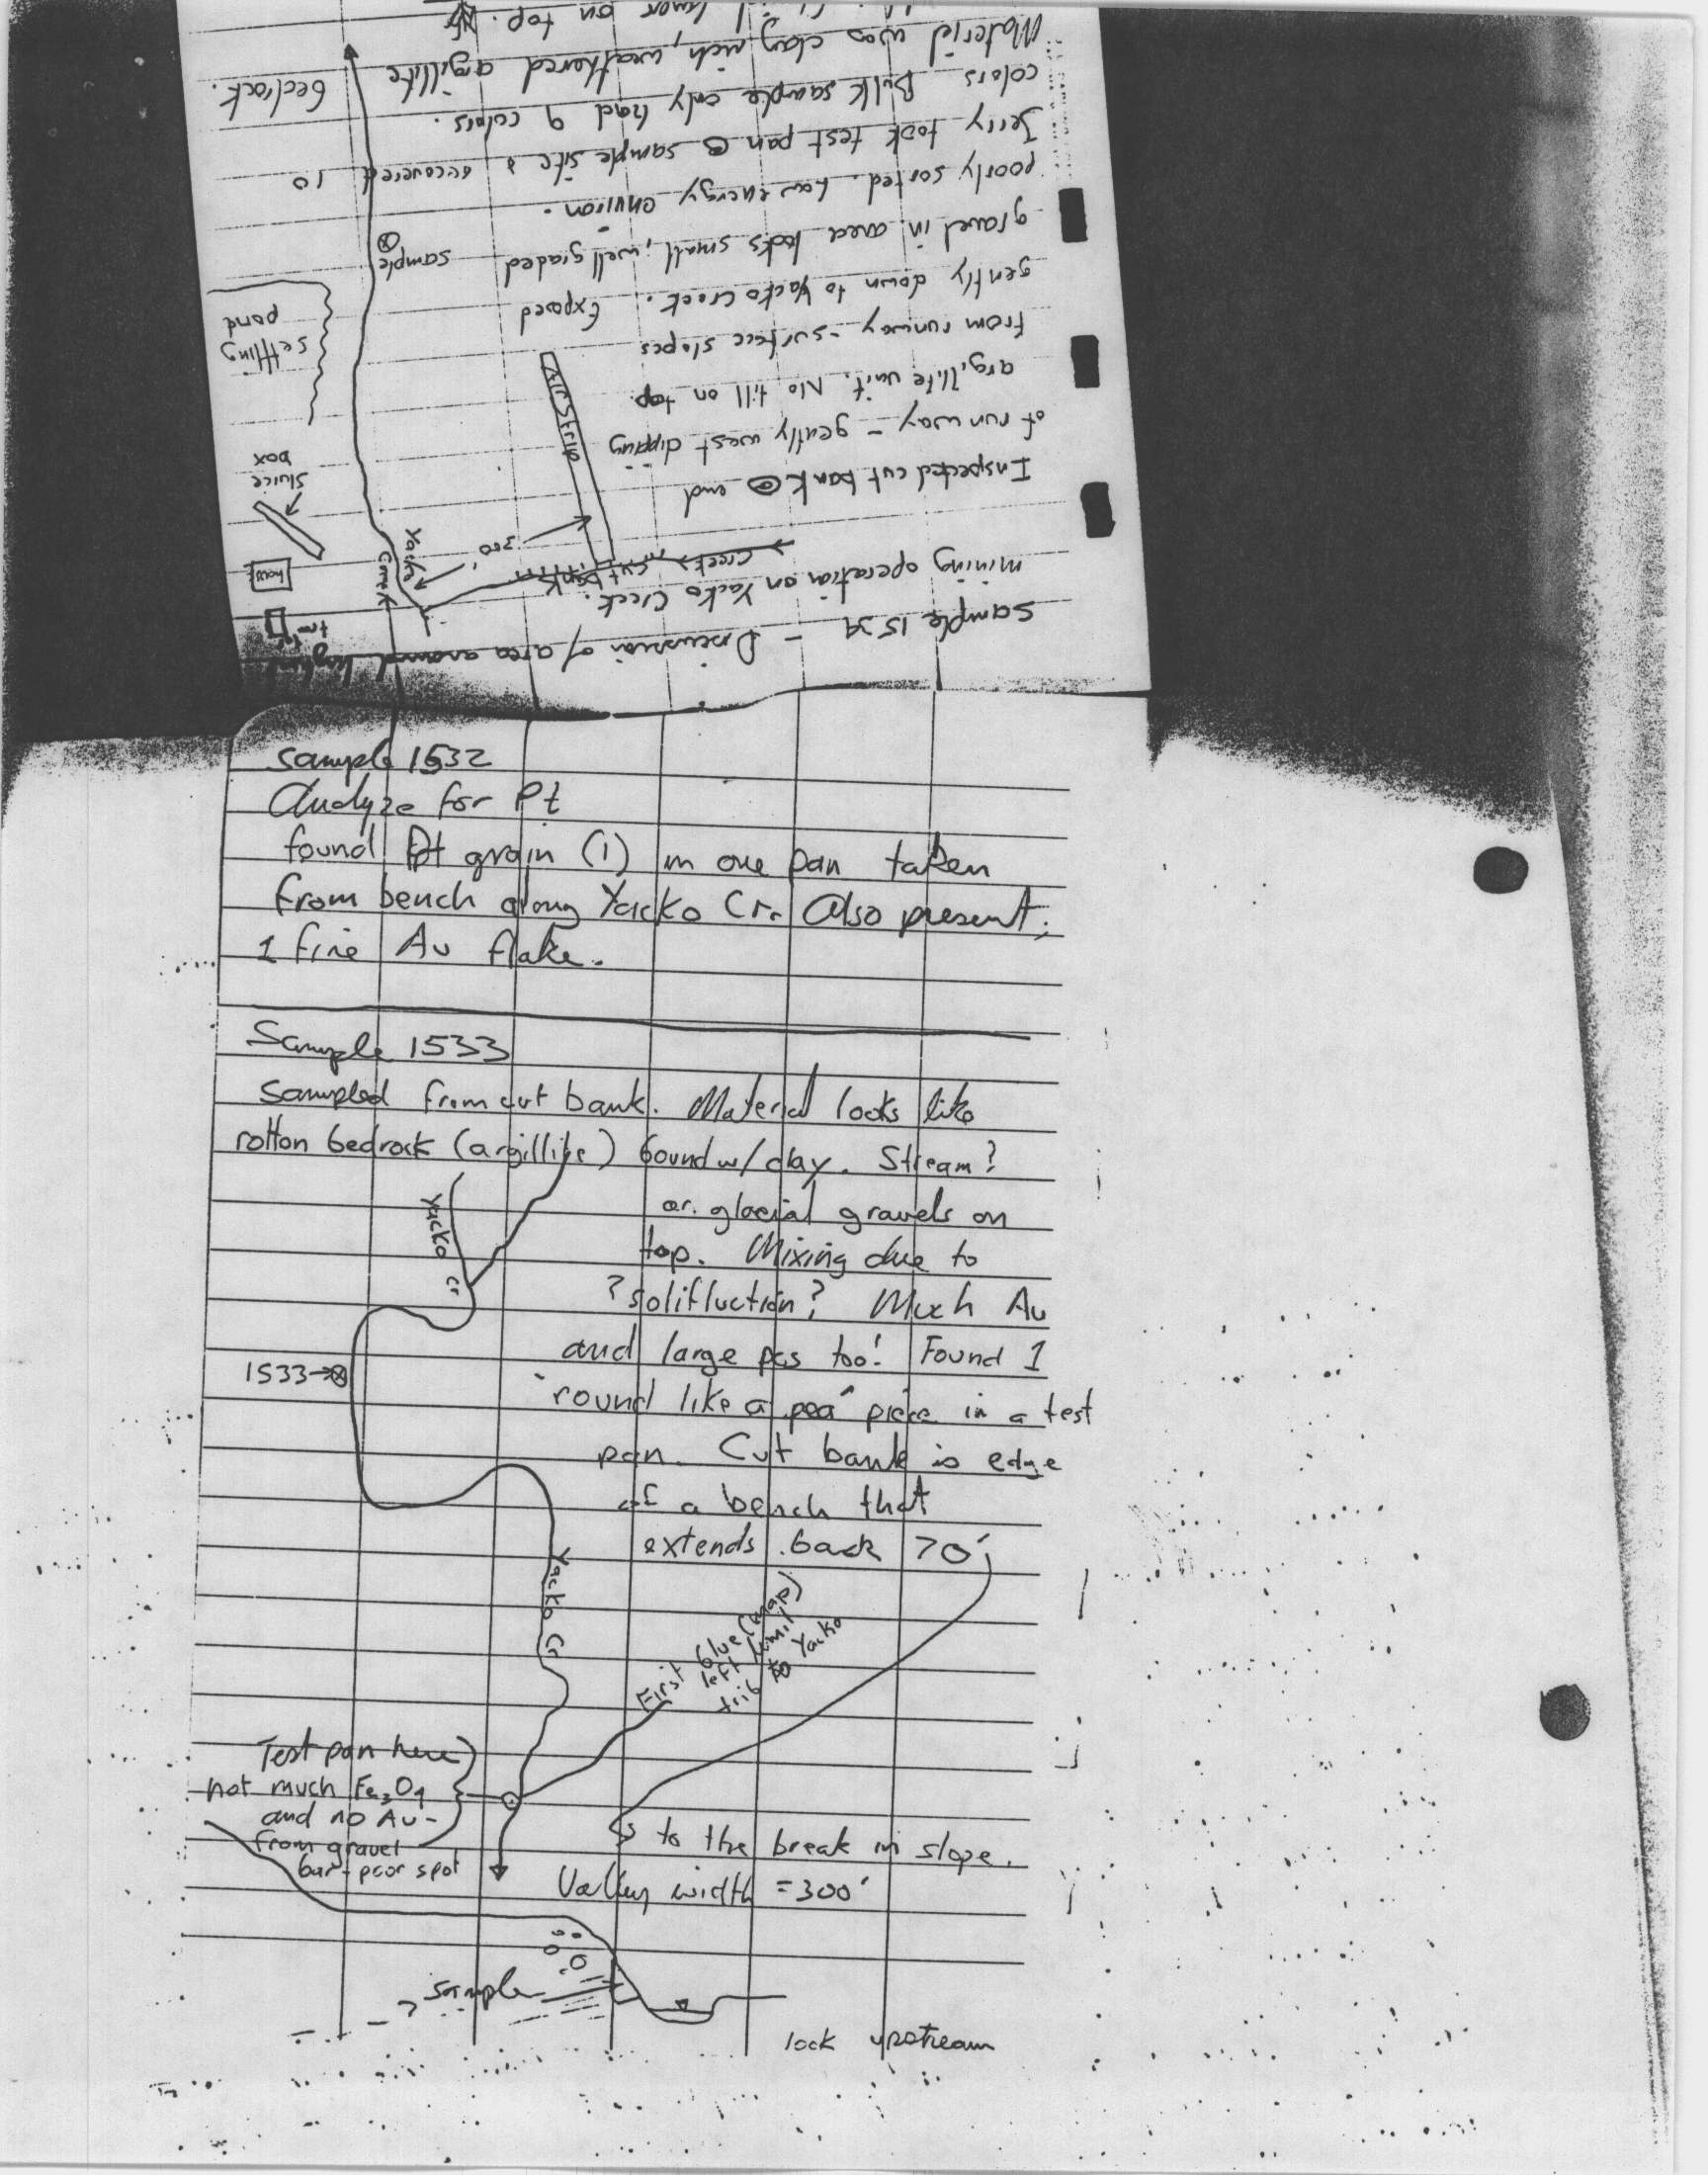 Sample 1532
Analyze for Pt
found Pt grain (1) in one pan taken
from bench along Yacko Cr. Also present;
1 fine Au flake.
Sample 1533
Sampled from cut bank. Material looks like
rotton bedrock (argillite) bound w/ clay. Stream?
or glacial gravels on
top. Mixing due to
?solifluction? Much Au
and large pcs too! Found 1
"round like a pea" piece in a test
pan. Cut bank is edge
of a bench that
extends back 70'
to the break in slope.
Valley width = 300'
Yacko Cr
1533
Yacko Cr
First blue (map)
left limit
trib to Yacko
Test pan here
not much Fe3O4
and no Au -
from gravel
bar - poor spot
sample
look upstream
Sample 1534 - Discussion of area around
mining operation on Yacko Creek.
Inspected cut bank @ end
of runway - gently west dipping
argillite unit. No till on top
from runway - surface slopes
gently down to Yacko Creek. Exposed
gravel in area looks small, well graded
poorly sorted. Low energy environ.
Jerry took test pan @ sample site & recovered 10
colors Bulk sample only had 9 colors.
Material was clay rich, weathered argillite bedrock.
on top.
creek
cut bank
300'
Airstrip
Yacko
Creek
house
sluice
box
settling
pond
sample